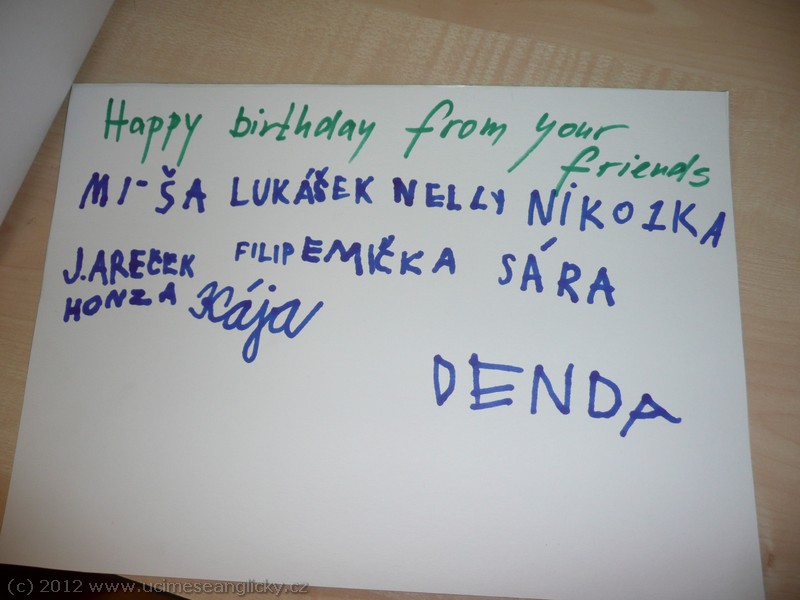 Happy birthday from your
friends
MI-ŠA LUKÁŠEK NELLY NIKO1KA
J.AREČEK FILIP EMIČKA SÁRA
HONZA Kája
DENDA
(c) 2012 www.ucimeseanglicky.cz